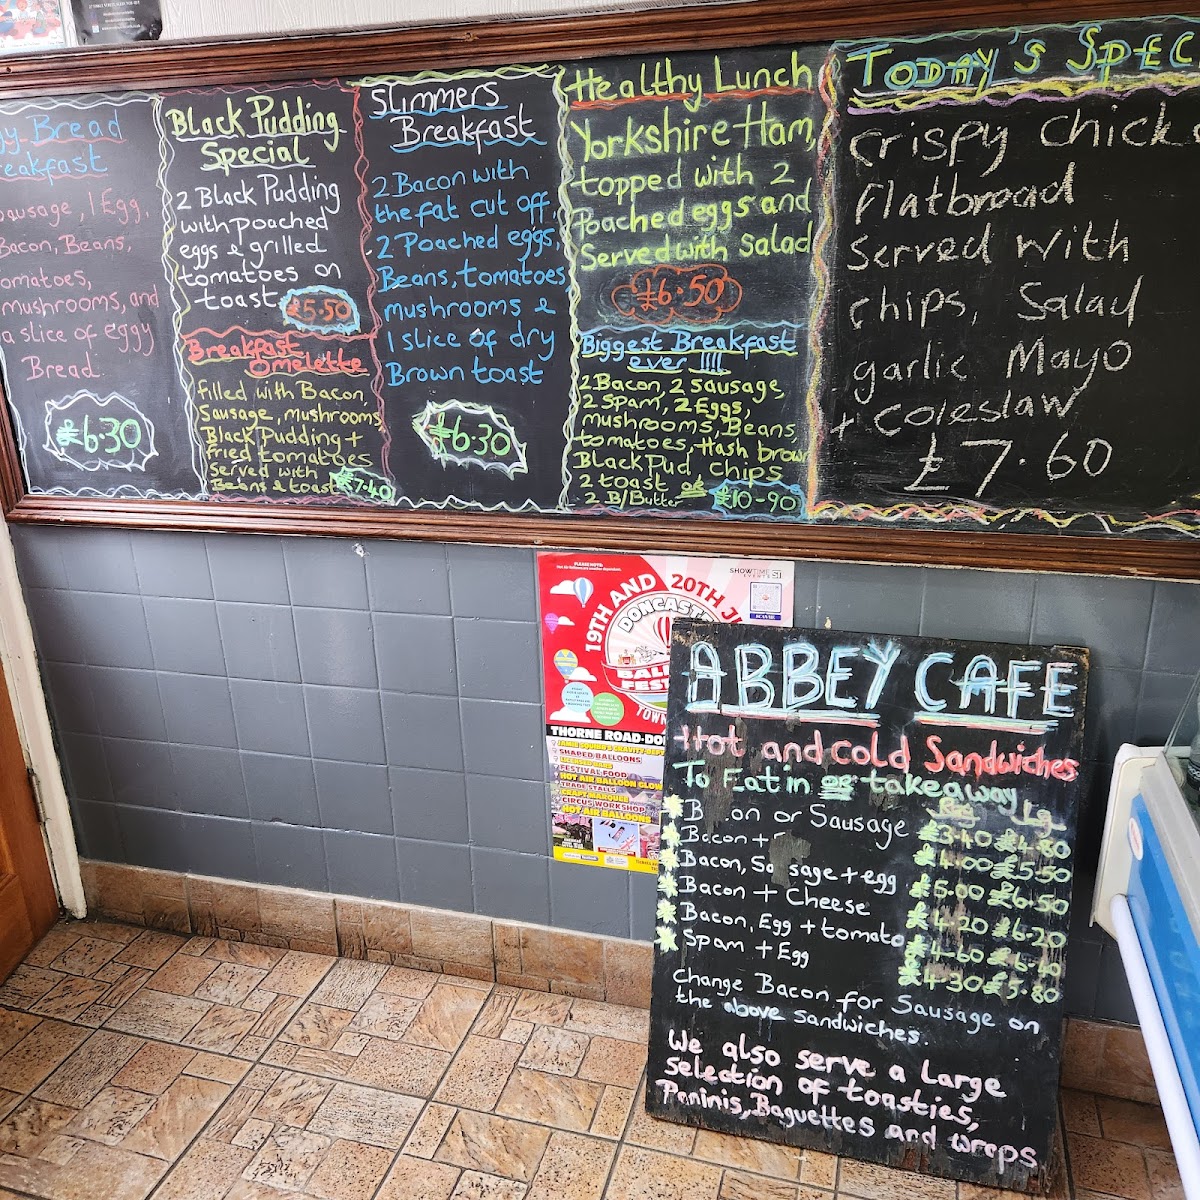 Bread
Breakfast
Sausage, 1 Egg,
Bacon, Beans,
tomatoes,
mushrooms, and
a slice of eggy
Bread.
£6.30
Black Pudding
Special
2 Black Pudding
with poached
eggs & grilled
tomatoes on
toast
£5.50
Breakfast
Omelette
filled with Bacon,
Sausage, mushrooms,
Black Pudding +
fried tomatoes
served with
Beans & toast
£7.40
Slimmers
Breakfast
2 Bacon with
the fat cut off,
2 Poached eggs,
Beans, tomatoes
mushrooms &
1 slice of dry
Brown toast
£6.30
Healthy Lunch
Yorkshire Ham,
topped with 2
Poached eggs and
Served with Salad
£6.50
Biggest Breakfast
ever !!!!
2 Bacon, 2 sausage,
2 Spam, 2 Eggs,
mushrooms, Beans,
tomatoes, Hash brown
Black Pud, chips
2 toast or
2 B/Butter
£10-90
Today's Spec
Crispy Chick
Flatbread
Served with
chips, Salad
garlic Mayo
+ Coleslaw
£7.60
PLEASE NOTE:
SHOWTIME
EVENTS
19TH AND 20TH JU
DONCASTE
BALL
FEST
TOWN
THORNE ROAD-DO
SHAPED BALLOONS
FESTIVAL FOOD
HOT AIR BALLOON GLOW
TRADE STALLS
CRAFT MARQUEE
CIRCUS WORKSHOP
HOT AIR BALLOONS
ABBEY CAFE
Hot and cold Sandwiches
To Eat in or takeaway
Reg Lg
B on or Sausage £3.40 £4.80
Bacon + £4.00 £5.50
Bacon, Sausage + egg £5.00 £6.50
Bacon + Cheese £4.20 £6.20
Bacon, Egg + tomato £4.60 £6.40
Spam + Egg £4.30 £5.80
Change Bacon for Sausage on
the above sandwiches.
We also serve a Large
Selection of toasties,
Paninis, Baguettes and wraps